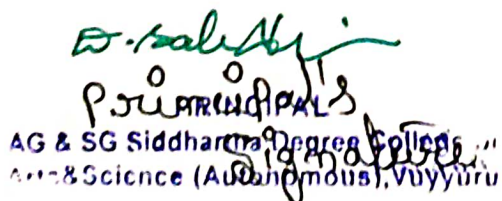 Principal's
PRINCIPAL
AG & SG Siddhartha Degree College
Signature
Arts & Science (Autonomous), Vuyyuru